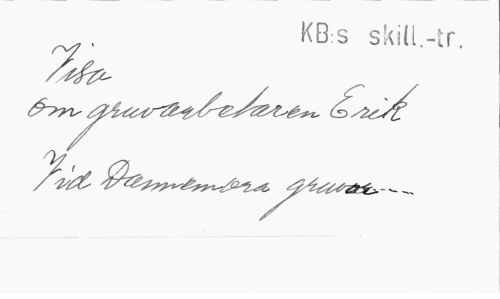 KB:s skill.-tr.
Visa
om gruvarbetaren Erik
Vid Dannemora gruvor---